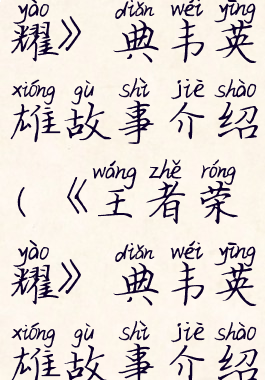 yào diǎn wéi yīng
耀》 典韦英
xióng gù shì jiè shào
雄故事介绍
wáng zhě róng
(《王者荣
yào diǎn wéi yīng
耀》 典韦英
xióng gù shì jiè shào
雄故事介绍